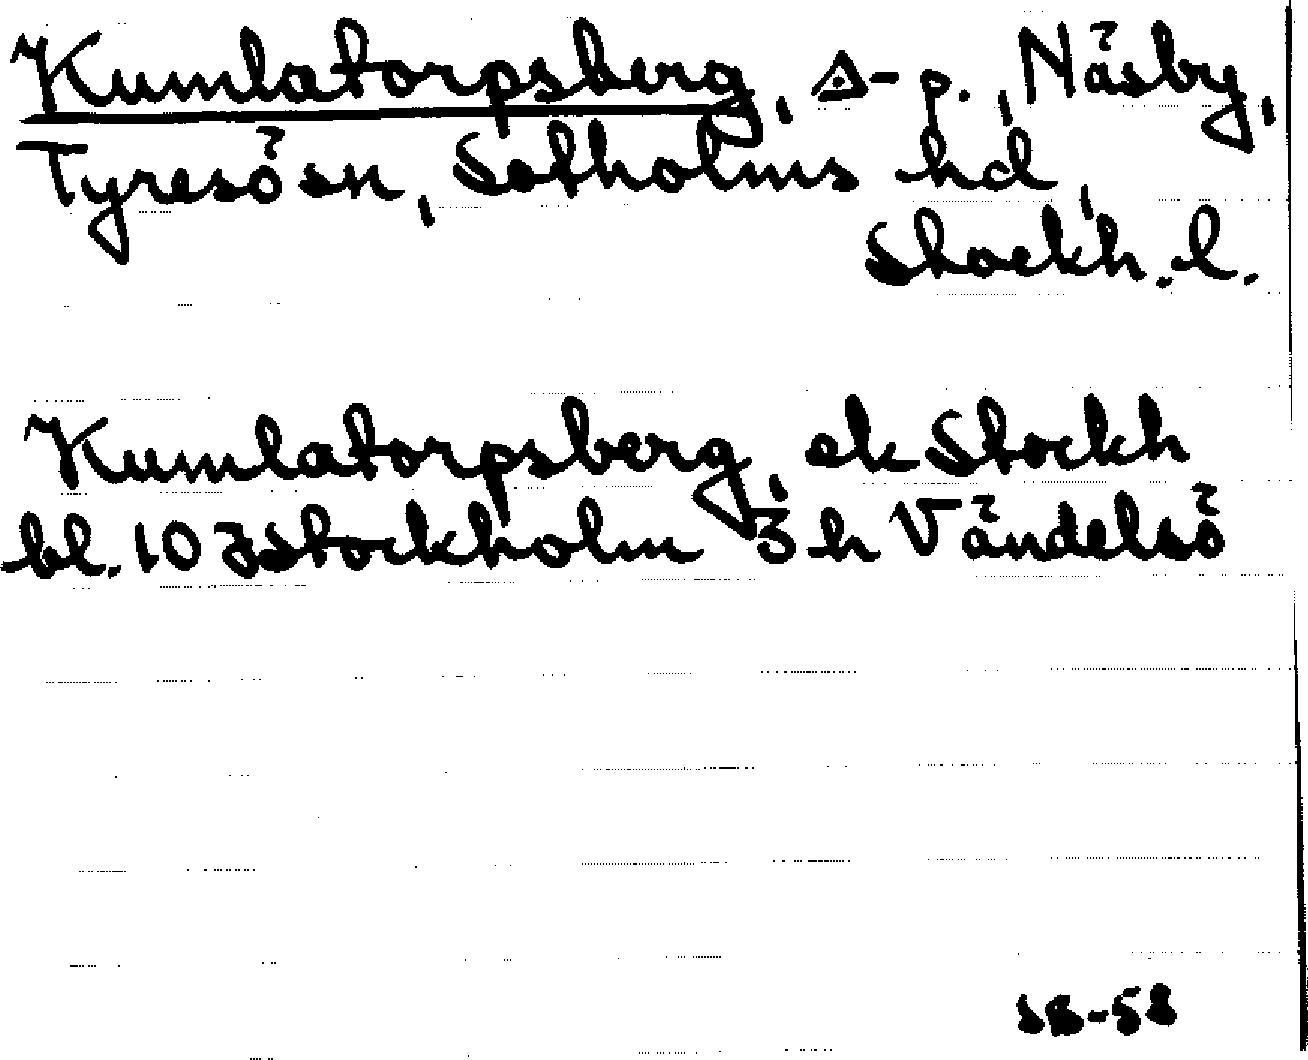 Kumlatorpsberg, △-p., Näsby,
Tyresö sn, Sotholms hd,
Stockh. l.
Kumlatorpsberg, ek Stockh
bl. 10 I Stockholm 3 h Vändelsö
SB-58